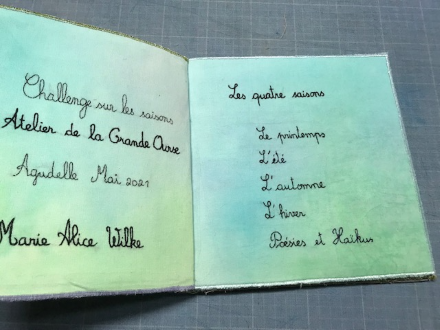 Challenge sur les saisons
Atelier de la Grande Ourse
Agudelle Mai 2021
Marie Alice Wilke
Les quatre saisons
Le printemps
L'été
L'automne
L'hiver
Poésies et Haïkus